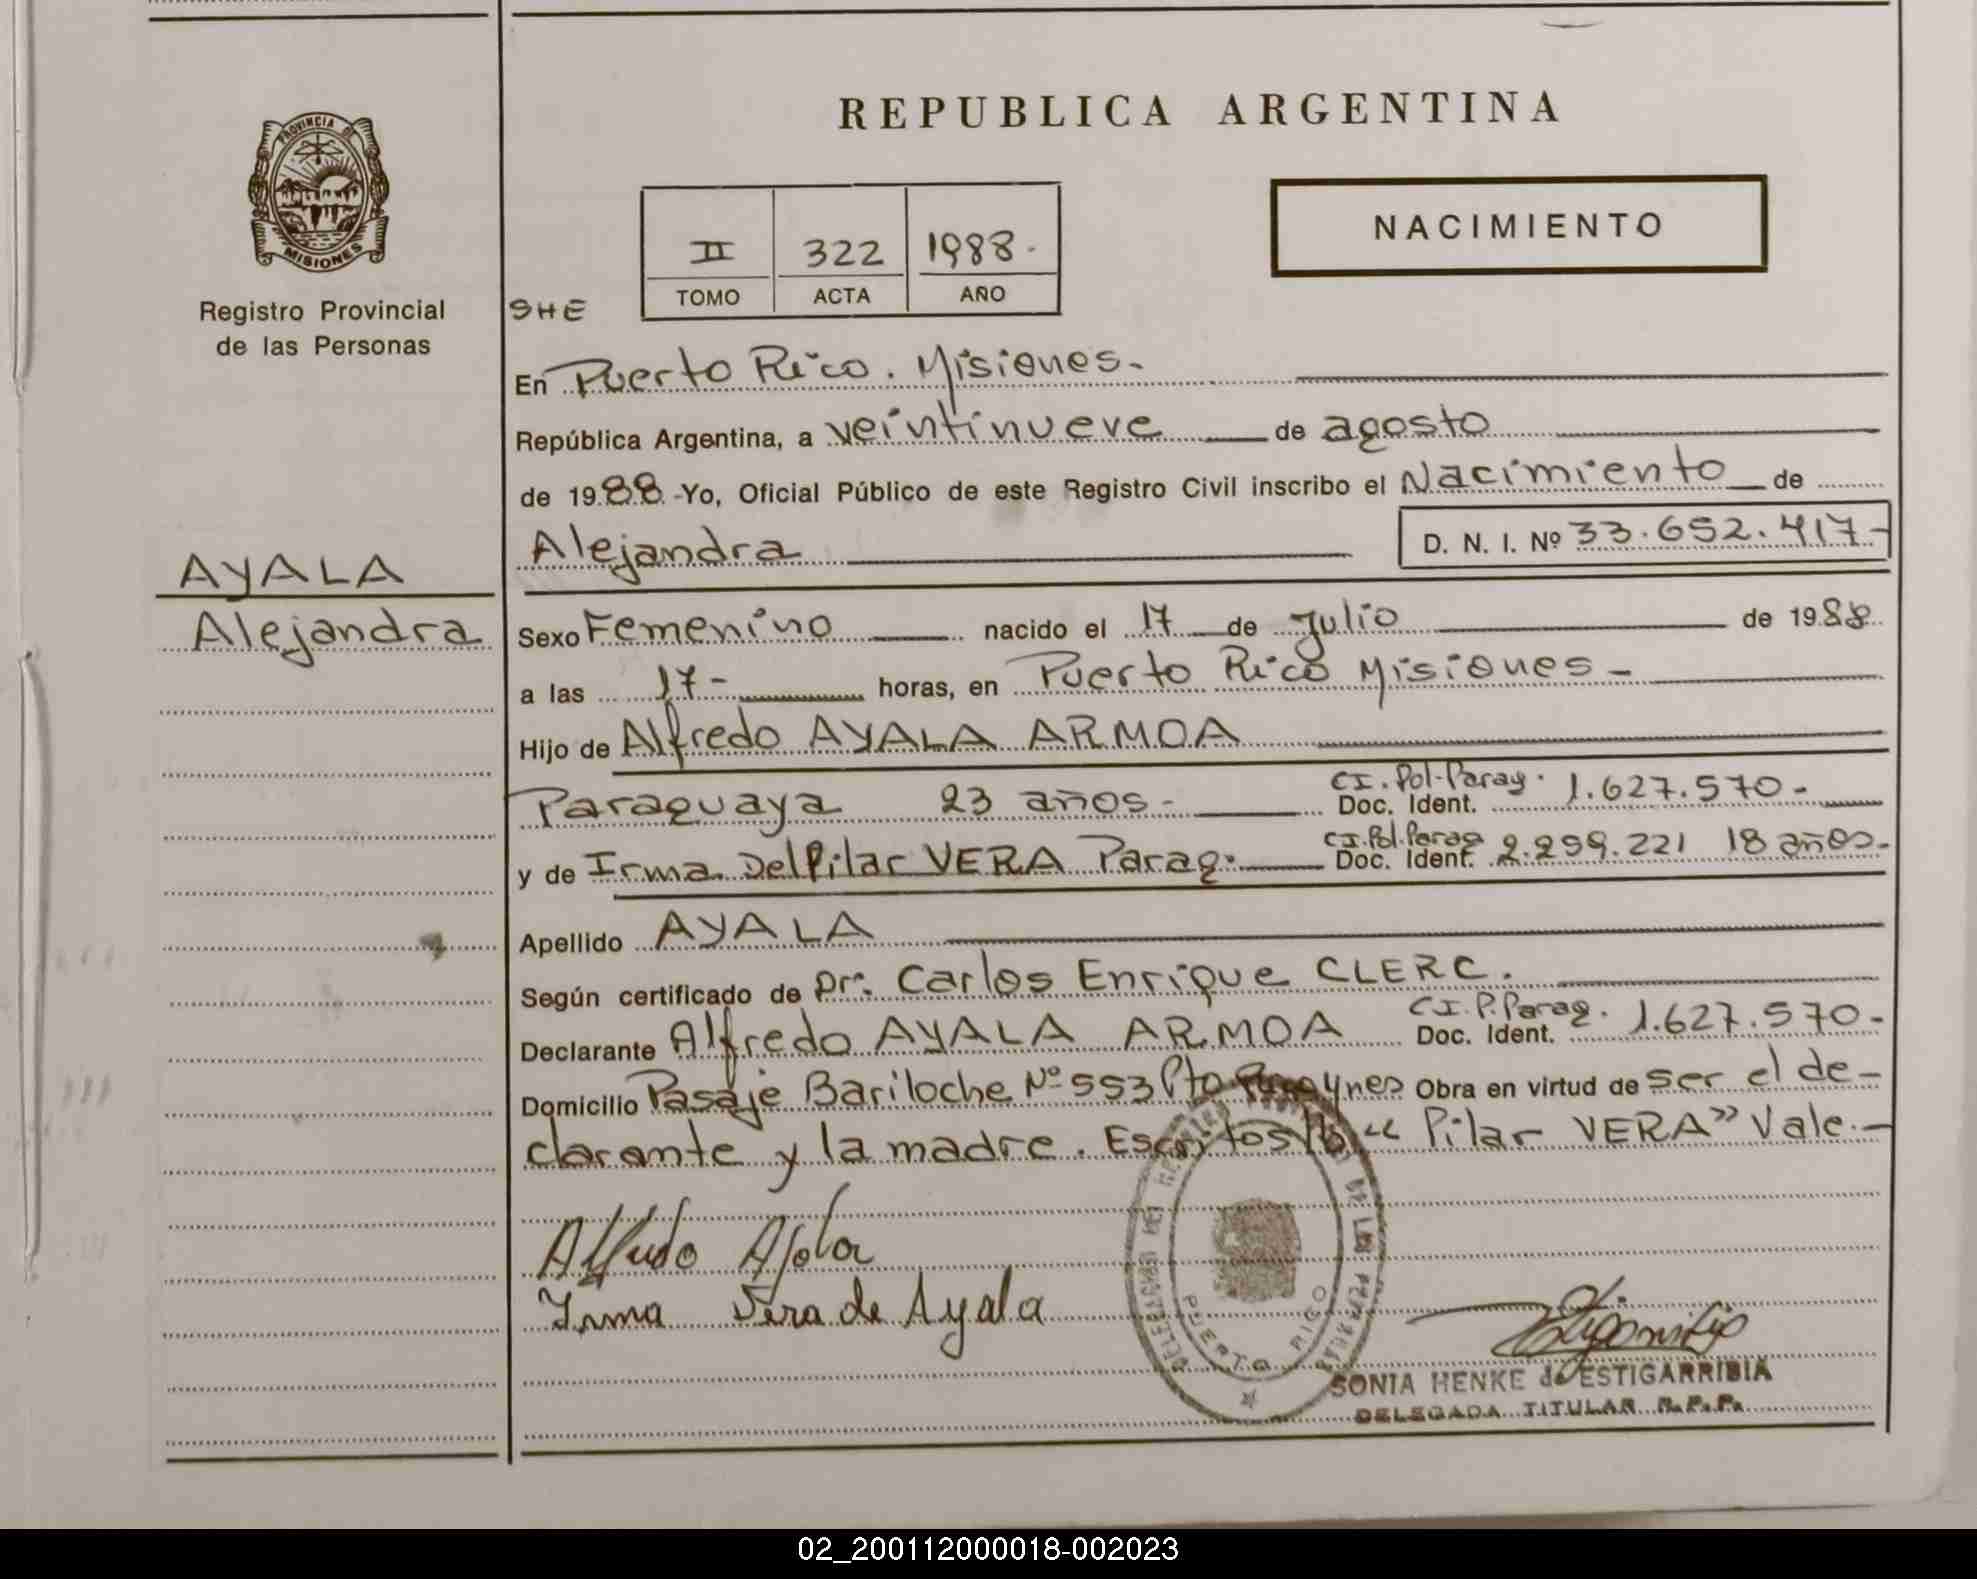 REPUBLICA ARGENTINA
PROVINCIA DE
MISIONES
Registro Provincial
de las Personas
NACIMIENTO
II 322 1988.
TOMO ACTA AÑO
SHE
En Puerto Rico. Misiones.-
República Argentina, a veintinueve de agosto
de 1988 -Yo, Oficial Público de este Registro Civil inscribo el Nacimiento de
Alejandra D. N. I. Nº 33.652.417-
AYALA
Alejandra
Sexo Femenino nacido el 17 de Julio de 1988
a las 17- horas, en Puerto Rico Misiones-
Hijo de Alfredo AYALA ARMOA
Paraguaya 23 años- CI. Pol. Parag. Doc. Ident. 1.627.570-
y de Irma Del Pilar VERA Parag. CI. Pol. Parag Doc. Ident. 2.299.221 18 años.-
Apellido AYALA
Según certificado de Dr. Carlos Enrique CLERC.
Declarante Alfredo AYALA ARMOA C.I. P. Parag. Doc. Ident. 1.627.570-
Domicilio Pasaje Bariloche Nº 553 Pto Obra en virtud de ser el de-
clarante y la madre. Escritos "Pilar VERA" Vale.-
Alfredo Ayala
Irma Vera de Ayala
PUERTO RICO
SONIA HENKE de ESTIGARRIBIA
DELEGADA TITULAR R.P.P.
02_200112000018-002023